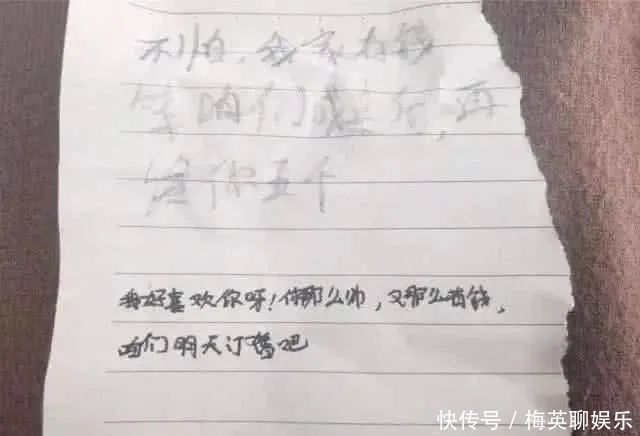 不怕，我家有钱
等咱们结婚，再
给你五千
我好喜欢你呀！你那么帅，又那么有钱，
咱们明天订婚吧
快传号/梅英聊娱乐